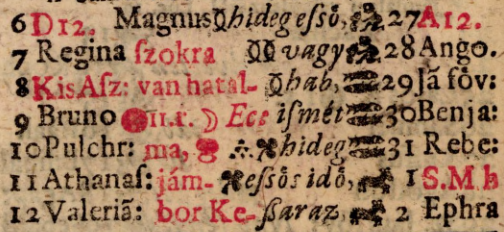 6 D 12. Magnus hideg eſsô, 27 A 12.
7 Regina ſzokra vagy 28 Ango.
8 Kis Aſz: van hatal- hab, 29 Jã föv:
9 Bruno 11.r. ☽ Ecc iſmét 30 Benja:
10 Pulchr: ma, hideg 31 Rebe:
11 Athanaſ: jám- eſsôs idô, 1 S. M. h
12 Valeriã: bor Ke- ſsaraz, 2 Ephra